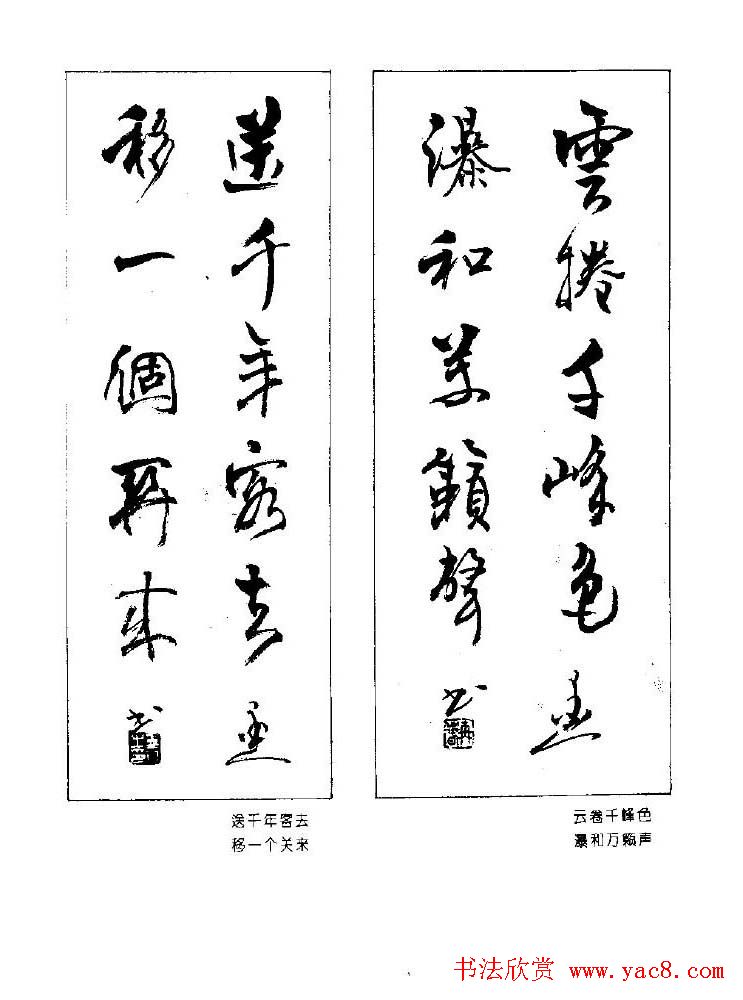 雲捲千峰色
瀑和萬籟聲
书
送千年客去
移一個關来
书
云卷千峰色
瀑和万籁声
送千年客去
移一个关来
书法欣赏 www.yac8.com